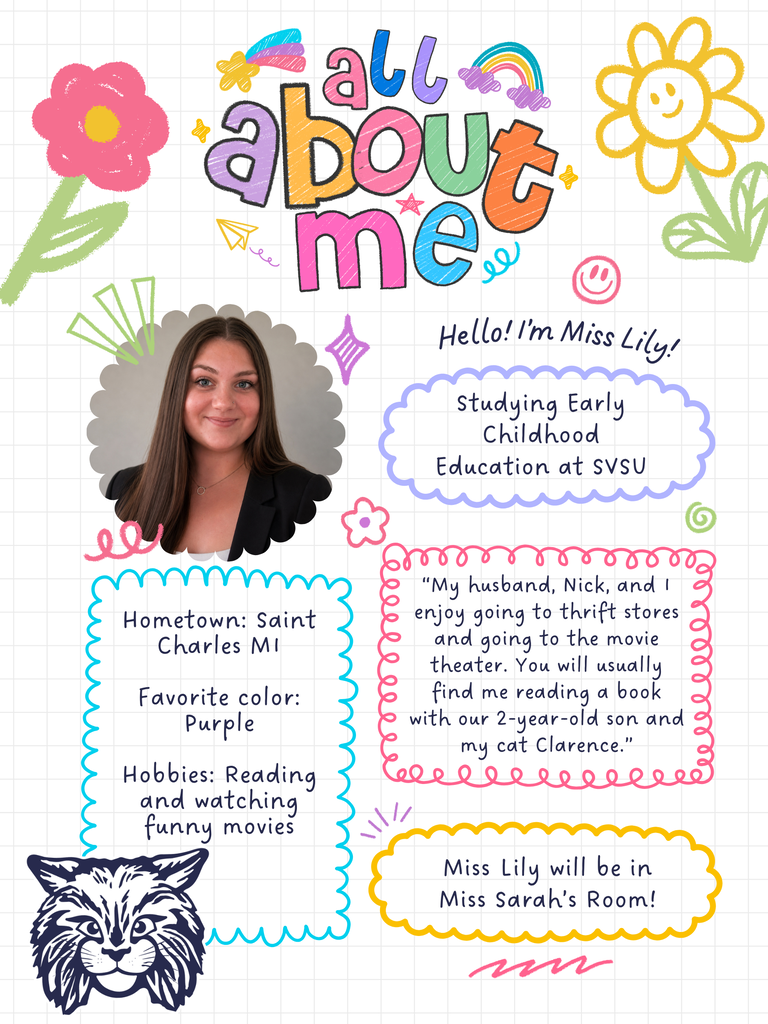 all
about
me
Hello! I'm Miss Lily!
Studying Early
Childhood
Education at SVSU
"My husband, Nick, and I
enjoy going to thrift stores
and going to the movie
theater. You will usually
find me reading a book
with our 2-year-old son and
my cat Clarence."
Hometown: Saint
Charles MI
Favorite color:
Purple
Hobbies: Reading
and watching
funny movies
Miss Lily will be in
Miss Sarah's Room!